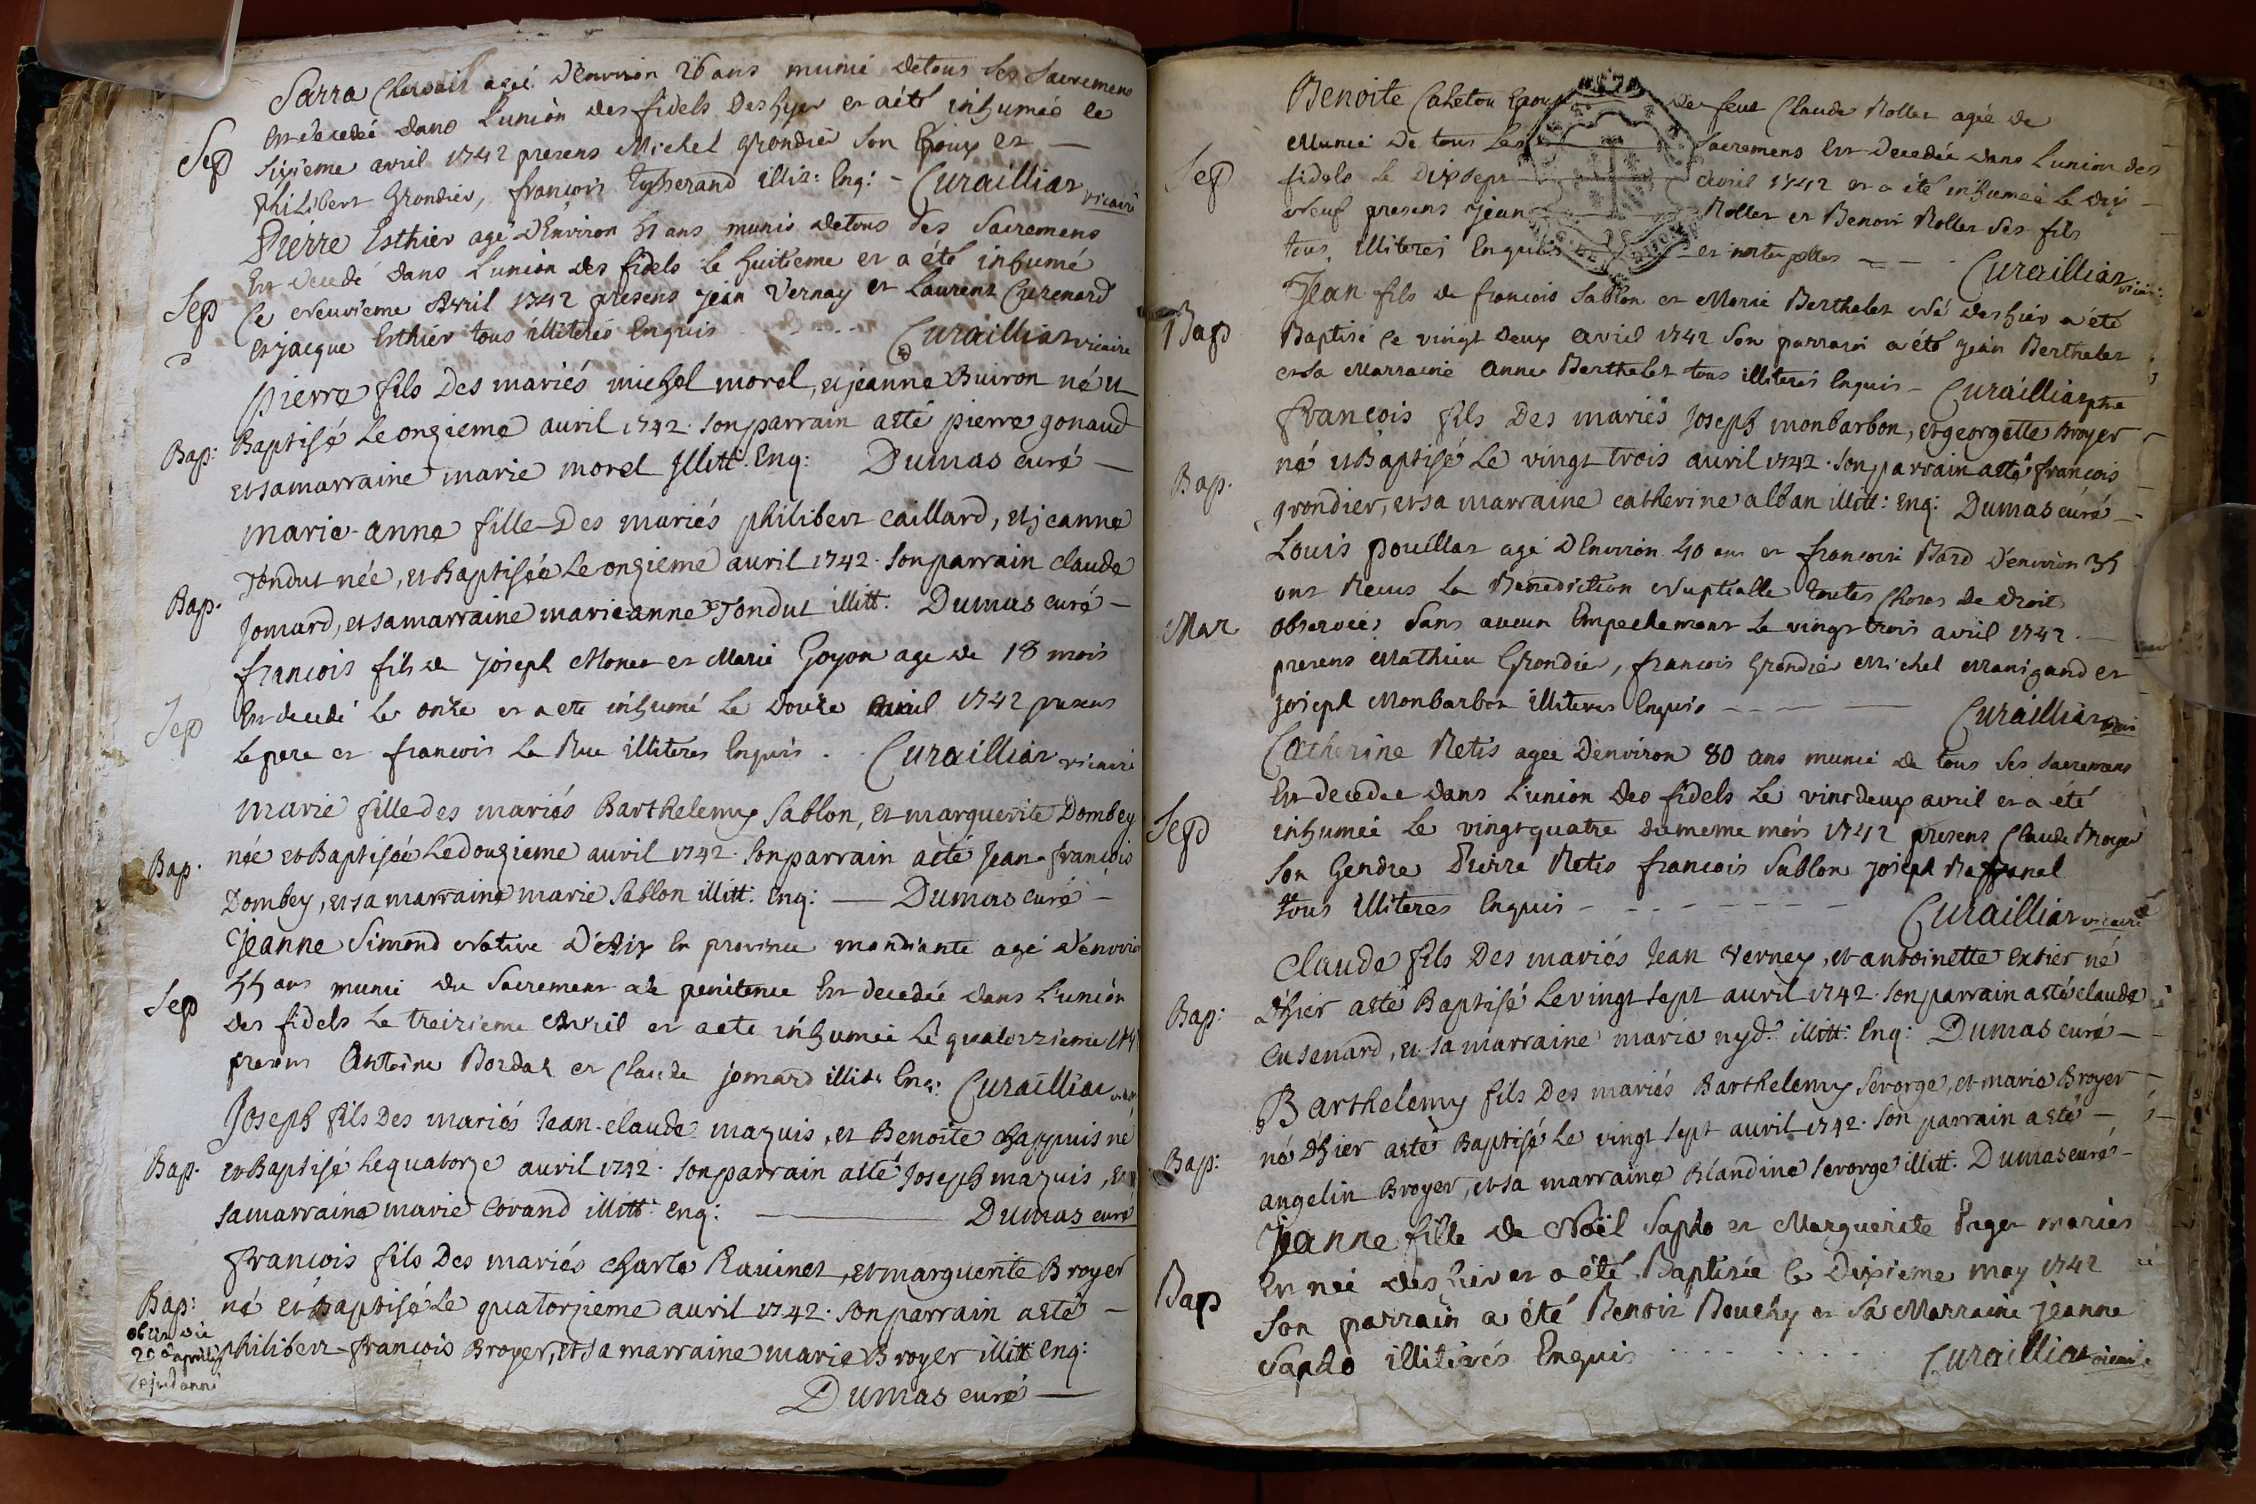 Sarra agée D'environ 26 ans munie de tous ses sacremens
Est decedeé dans L'union des fidels Des hyer et a été inhumeé le
Sep
sixieme avril 1742 presens Michel Grondier son Epoux et
Philibert Grondier, françois illit: Enq: - Curailliat vicaire
Pierre Esthier agé D'Environ ans munis de tous ses Sacremens
Est decedé dans L'union des fidels le huitieme et a été inhumé
Sep
Le neuvieme Avril 1742 presens jean Vernay et Laurent
et jacque Esthier tous illiterés Enquis Curailliat vicaire
pierre fils Des mariés michel morel, et jeanne Buiron né et
Bap: Baptisé Le onzieme avril 1742. son parrain a eté pierre gonaud
et sa marraine marie morel Illitt. Enq: Dumas curé
marie-anne fille Des mariés philibert caillard, et jeanne
Tondut née, et Baptisée Le onzieme avril 1742. son parrain claude
Bap.
Jomard, et sa marraine marieanne Tondut illitt. Dumas curé
francois fils de joseph Monet et Marie Goyon age de 18 mois
Sep
Est decedé Le onze et a ete inhumé Le Douze avril 1742 presens
Le pere et francois La Rue illiteres Enquis. Curailliat vicaire
marie fille des mariés Barthelemy Sablon, et marguerite Dombey
Bap. née et Baptisée Le douzieme avril 1742. Son parrain a eté Jean-françois
Dombey, et sa marraine marie Sablon illitt: Enq: Dumas curé
Jeanne Simond Native D'Aix En province mandiante agé d'environ
ans munie du Sacrement de penitence Est decedée dans L'union
Sep
Des fidels Le treizieme Avril et a ete inhumée Le quatorzieme
presens Antoine Bordat et Claude jomard illit: Enq: Curailliat
Joseph fils Des mariés Jean-claude mazuis, et Benoite chappuis né
Bap. et Baptisé Le quatorze avril 1742. son parrain a eté Joseph mazuis, et
sa marraine marie Corand illitt: enq: Dumas curé
francois fils Des mariés charle Ravinet, et marguerite Broyer
Bap: né et Baptisé Le quatorzieme avril 1742. son parrain a eté
philibert-francois Broyer, et sa marraine marie Broyer illitt enq:
Dumas curé
Benoite Epouse De feu Claude Rollet ageé de
Munie De tous Les Sacremens Est Decedée dans L'union des
Sep
fidels Le Dix sept avril 1742 et a été inhumeé Le dix
Neuf presens Jean Rollet et Benoit Rollet Ses fils
tous illiterés Enquis Curailliat vicaire
Jean fils de francois Sablon et Marie Berthelet Né des hier a été
Bap
Baptisé Le vingt Deux avril 1742 Son parrain a été jean Berthelet
et sa Marraine Anne Berthelet tous illiterés Enquis - Curailliat ptre
françois fils Des mariés Joseph monbarbon, et georgette Broyer
Bap. né et Baptisé Le vingt trois avril 1742. son parrain a eté francois
grondier, et sa marraine catherine alban illitt: Enq: Dumas curé
Louis pouillat agé D'Environ 40 ans et francoise Bard D'environ
ont Recus La Benediction Nuptialle toutes Choses De droit
Mar
observées Sans aucun Empechement Le vingt trois avril 1742.
presens Mathieu Grondier, francois Grondier Michel Manigand et
joseph Monbarbon illiteres Enquis Curailliat
Catherine Retis ageé D'environ 80 ans munie de tous Ses Sacremens
Est decedee dans L'union Des fidels Le vint deux avril et a été
Sep
inhumeé Le vingt quatre du meme mois 1742 presens Claude Broyer
Son Gendre Pierre Retis francois Sablon joseph Raffanel
tous illiteres Enquis Curailliat vicaire
Claude fils Des mariés Jean Verney, et antoinette Extier né
Bap: D'hier a eté Baptisé Le vingt sept avril 1742. son parrain a eté claude
Cusenard, et sa marraine marie nyd. illitt: Enq: Dumas curé
Barthelemy fils Des mariés Barthelemy Servorge, et marie Broyer
Bap: né D'hier a eté Baptisé Le vingt sept avril 1742. Son parrain a eté
angelin Broyer, et sa marraine Blandine Servorge illitt. Dumas curé
Jeanne fille de Noël Saplo et Marguerite Pager mariés
Est neé des hier et a été Baptisée Le Dixieme may 1742
Bap
Son parrain a été Benoit Bouchy et Sa Marraine jeanne
Saplo illiterés Enquis Curailliat vicaire